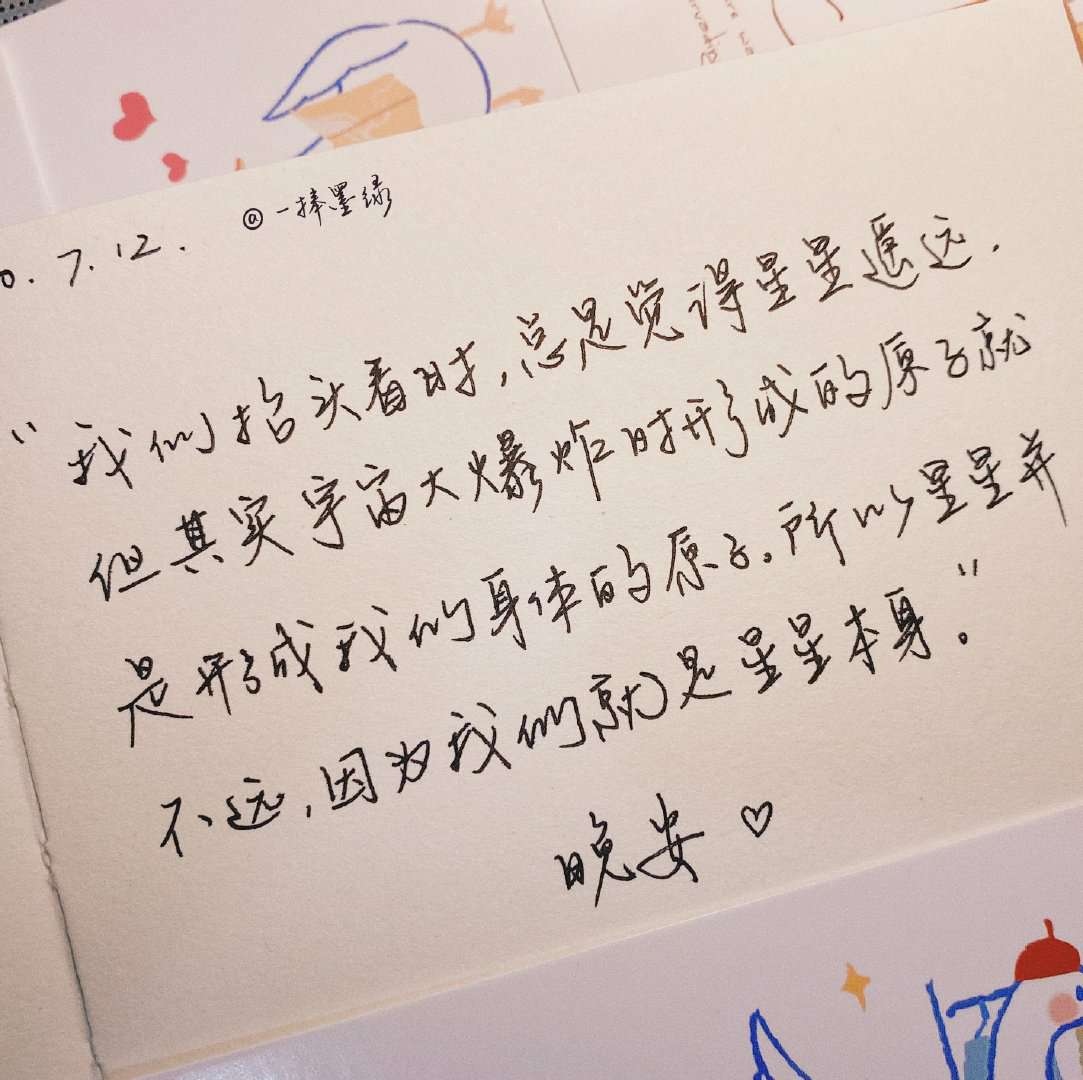 0.7.12.
@一捧墨绿
“我们抬头看时,总是觉得星星遥远.
但其实宇宙大爆炸时形成的原子就
是形成我们身体的原子。所以星星并
不远,因为我们就是星星本身。”
晚安♡